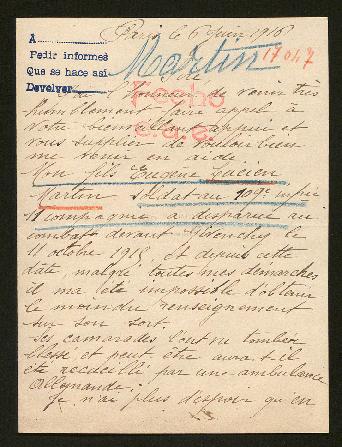 Paris le 6 Juin 1916
A
Pedir informes
Que se hace así
Devolver
Martin
17047
Fecho
Sire
J'ai l'honneur de venir très
humblement faire appel à
votre bienveillant appui et
vous supplier de vouloir bien
me venir en aide.
Mon fils Eugène Lucien
Martin soldat au 109e infie
11 compagnie a disparu au
combat devant
11 octobre 1915. Et depuis cette
date, malgré toutes mes démarches
il m'a été impossible d'obtenir
le moindre renseignement
sur son sort.
Ses camarades l'ont vu tomber
blessé et peut être aura-t-il
été recueilli par une ambulance
Allemande.
Je n'ai plus d'espoir qu'en